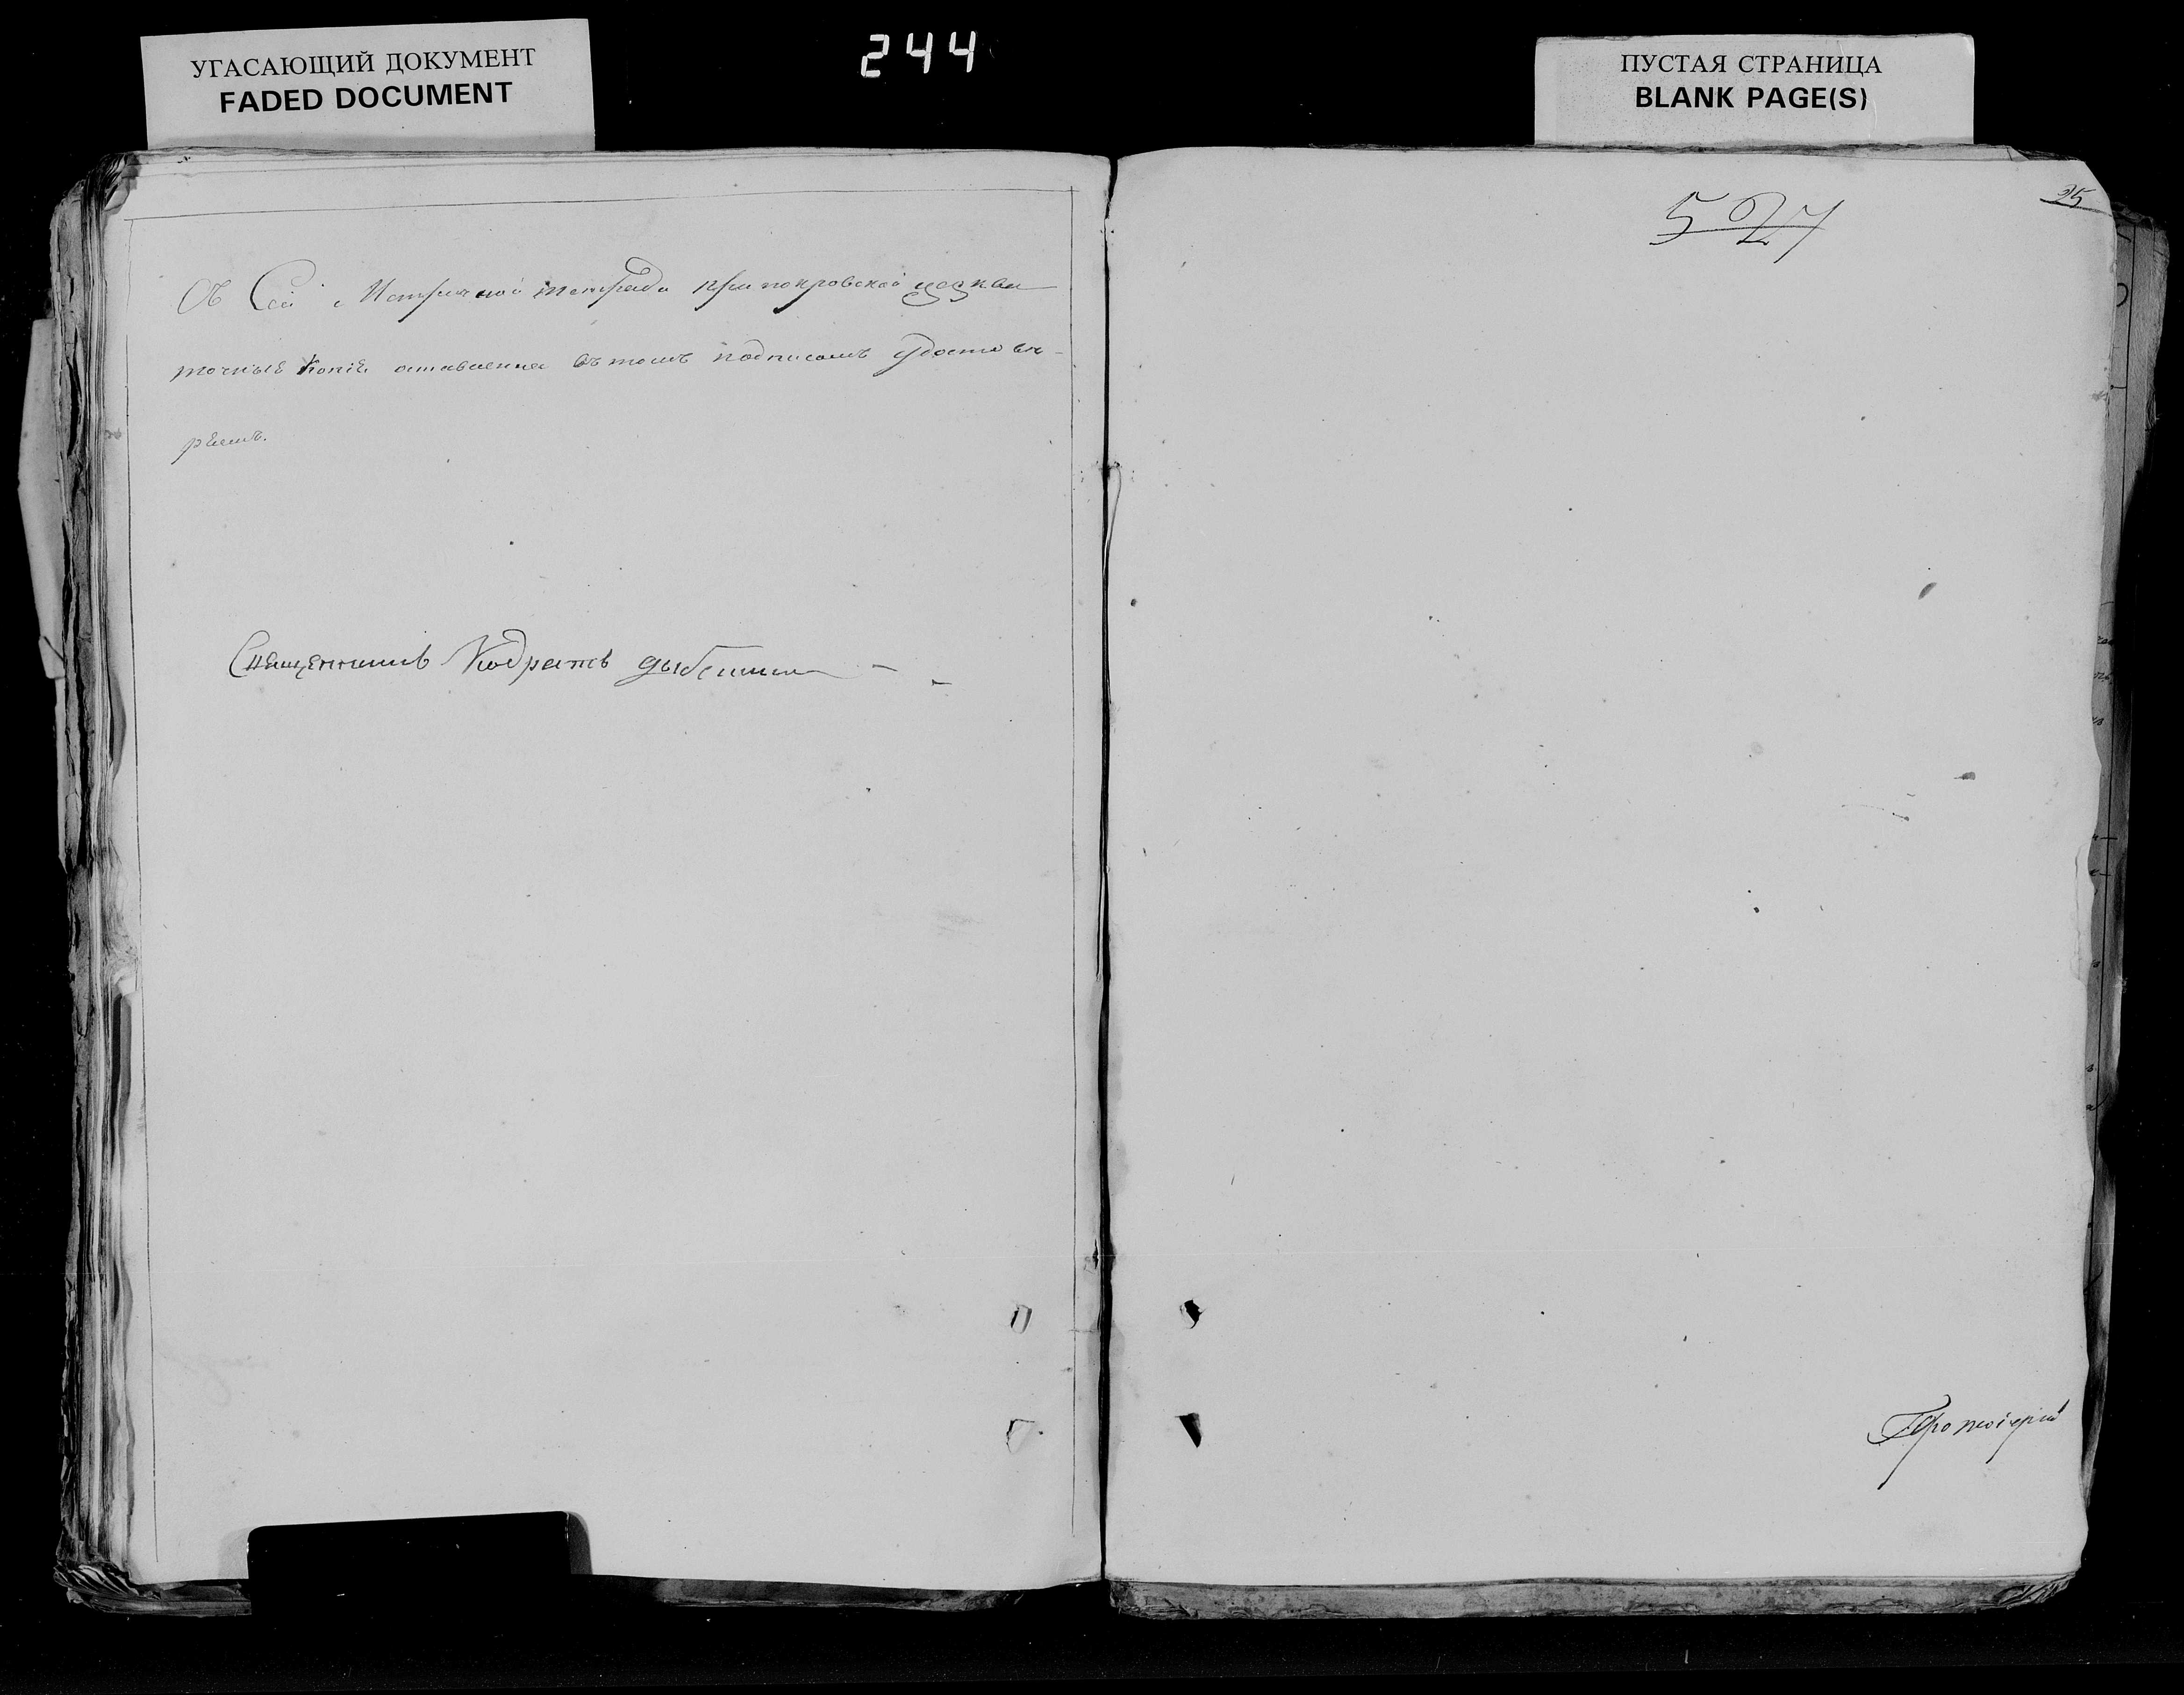 УГАСАЮЩИЙ ДОКУМЕНТ
FADED DOCUMENT
244
ПУСТАЯ СТРАНИЦА
BLANK PAGE(S)
Съ Сей Метричной тетради при покровской церкви
точные копіи оставлены въ томъ подписомъ удостовѣ-
ряемъ.
Священникъ Кодратъ
527
25
Протоіерей